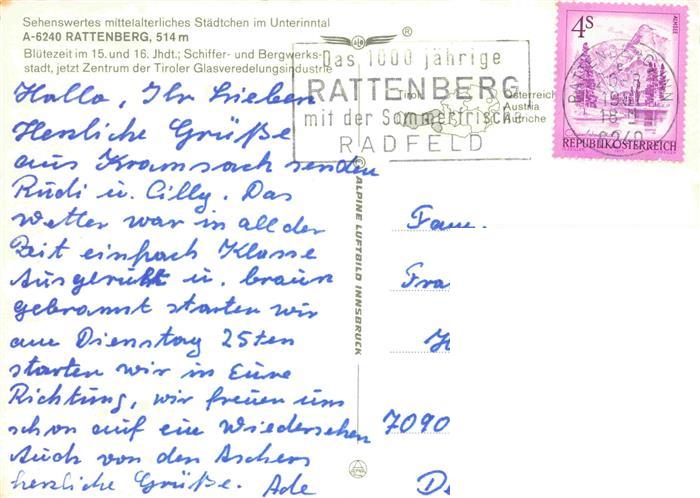 Sehenswertes mittelalterliches Städtchen im Unterinntal
A-6240 RATTENBERG, 514 m
Blütezeit im 15. und 16. Jhdt.; Schiffer- und Bergwerks-
stadt, jetzt Zentrum der Tiroler Glasveredelungsindustrie
Hallo, Ihr Lieben
Herzliche Grüße
aus Kramsach senden
Rudi u. Cilly. Das
Wetter war in all der
Zeit einfach Klasse
Ausgeruht u. braun
gebrannt starten wir
am Dienstag 25ten
starten wir in Eure
Richtung, wir freuen uns
schon auf ein Wiedersehen
Auch von den Aschers
herzliche Grüße. Ade
© ALPINE LUFTBILD INNSBRUCK
®
Das 1000 jährige
RATTENBERG
mit der Sommerfrische
RADFELD
Tirol
Österreich
Austria
Autriche
4S
ALMSEE
REPUBLIK ÖSTERREICH
6240
Fam.
Fra
7090